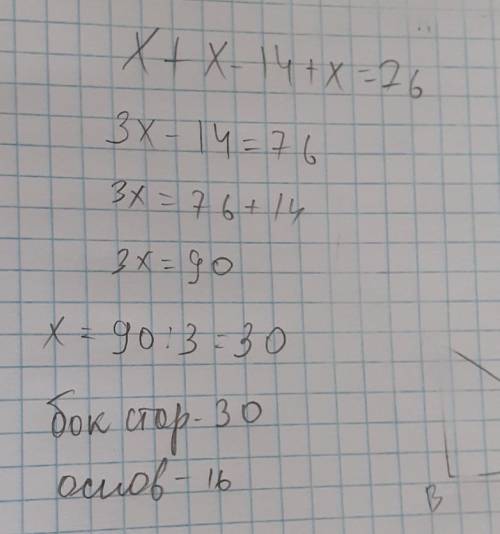 x+x-14+x=76
3x-14=76
3x=76+14
3x=90
x=90:3=30
бок стор-30
основ-16
В